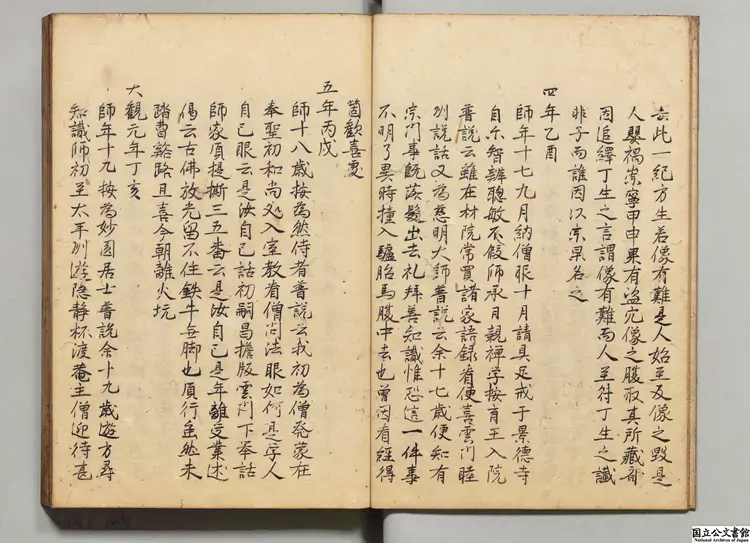 六此一紀方生若像有難是人始至及像之毀是
人嬰禍崇寧甲申果有盗穴像之腹取其所藏部
因追繹丁生之言謂像有難而人至符丁生之讖
非子而誰因以宗杲名之
四年乙酉
師年十七九月納僧服十月請具足戒于景德寺
自尓智辨聰敏不假師承日親禅学按育王入院
普説云雖在村院常買諸家語録看便喜雲門睦
州説話又為慈明大師普説云余十七歳便知有
宗門事既落髮出去礼拜善知識惟恐這一件事
不明了異時撞入驢胎馬腹中去也曽因看經得
箇歡喜處
五年丙戌
師十八歳按為然侍者普説云我初為僧発蒙在
奉聖初和尚処入室教看僧問法眼如何是学人
自己眼云是汝自己話初嗣昌擔版雲门下举話
師家須提撕三五番云是汝自己是年離受業述
偈云古佛放光留不住鉄牛無脚也須行雖然未
踏曹谿路且喜今朝離火坑
大觀元年丁亥
師年十九按為妙圓居士普説余十九歳遊方尋
知識師初至太平州遊隐静杯渡菴主僧迎待甚
国立公文書館
National Archives of Japan